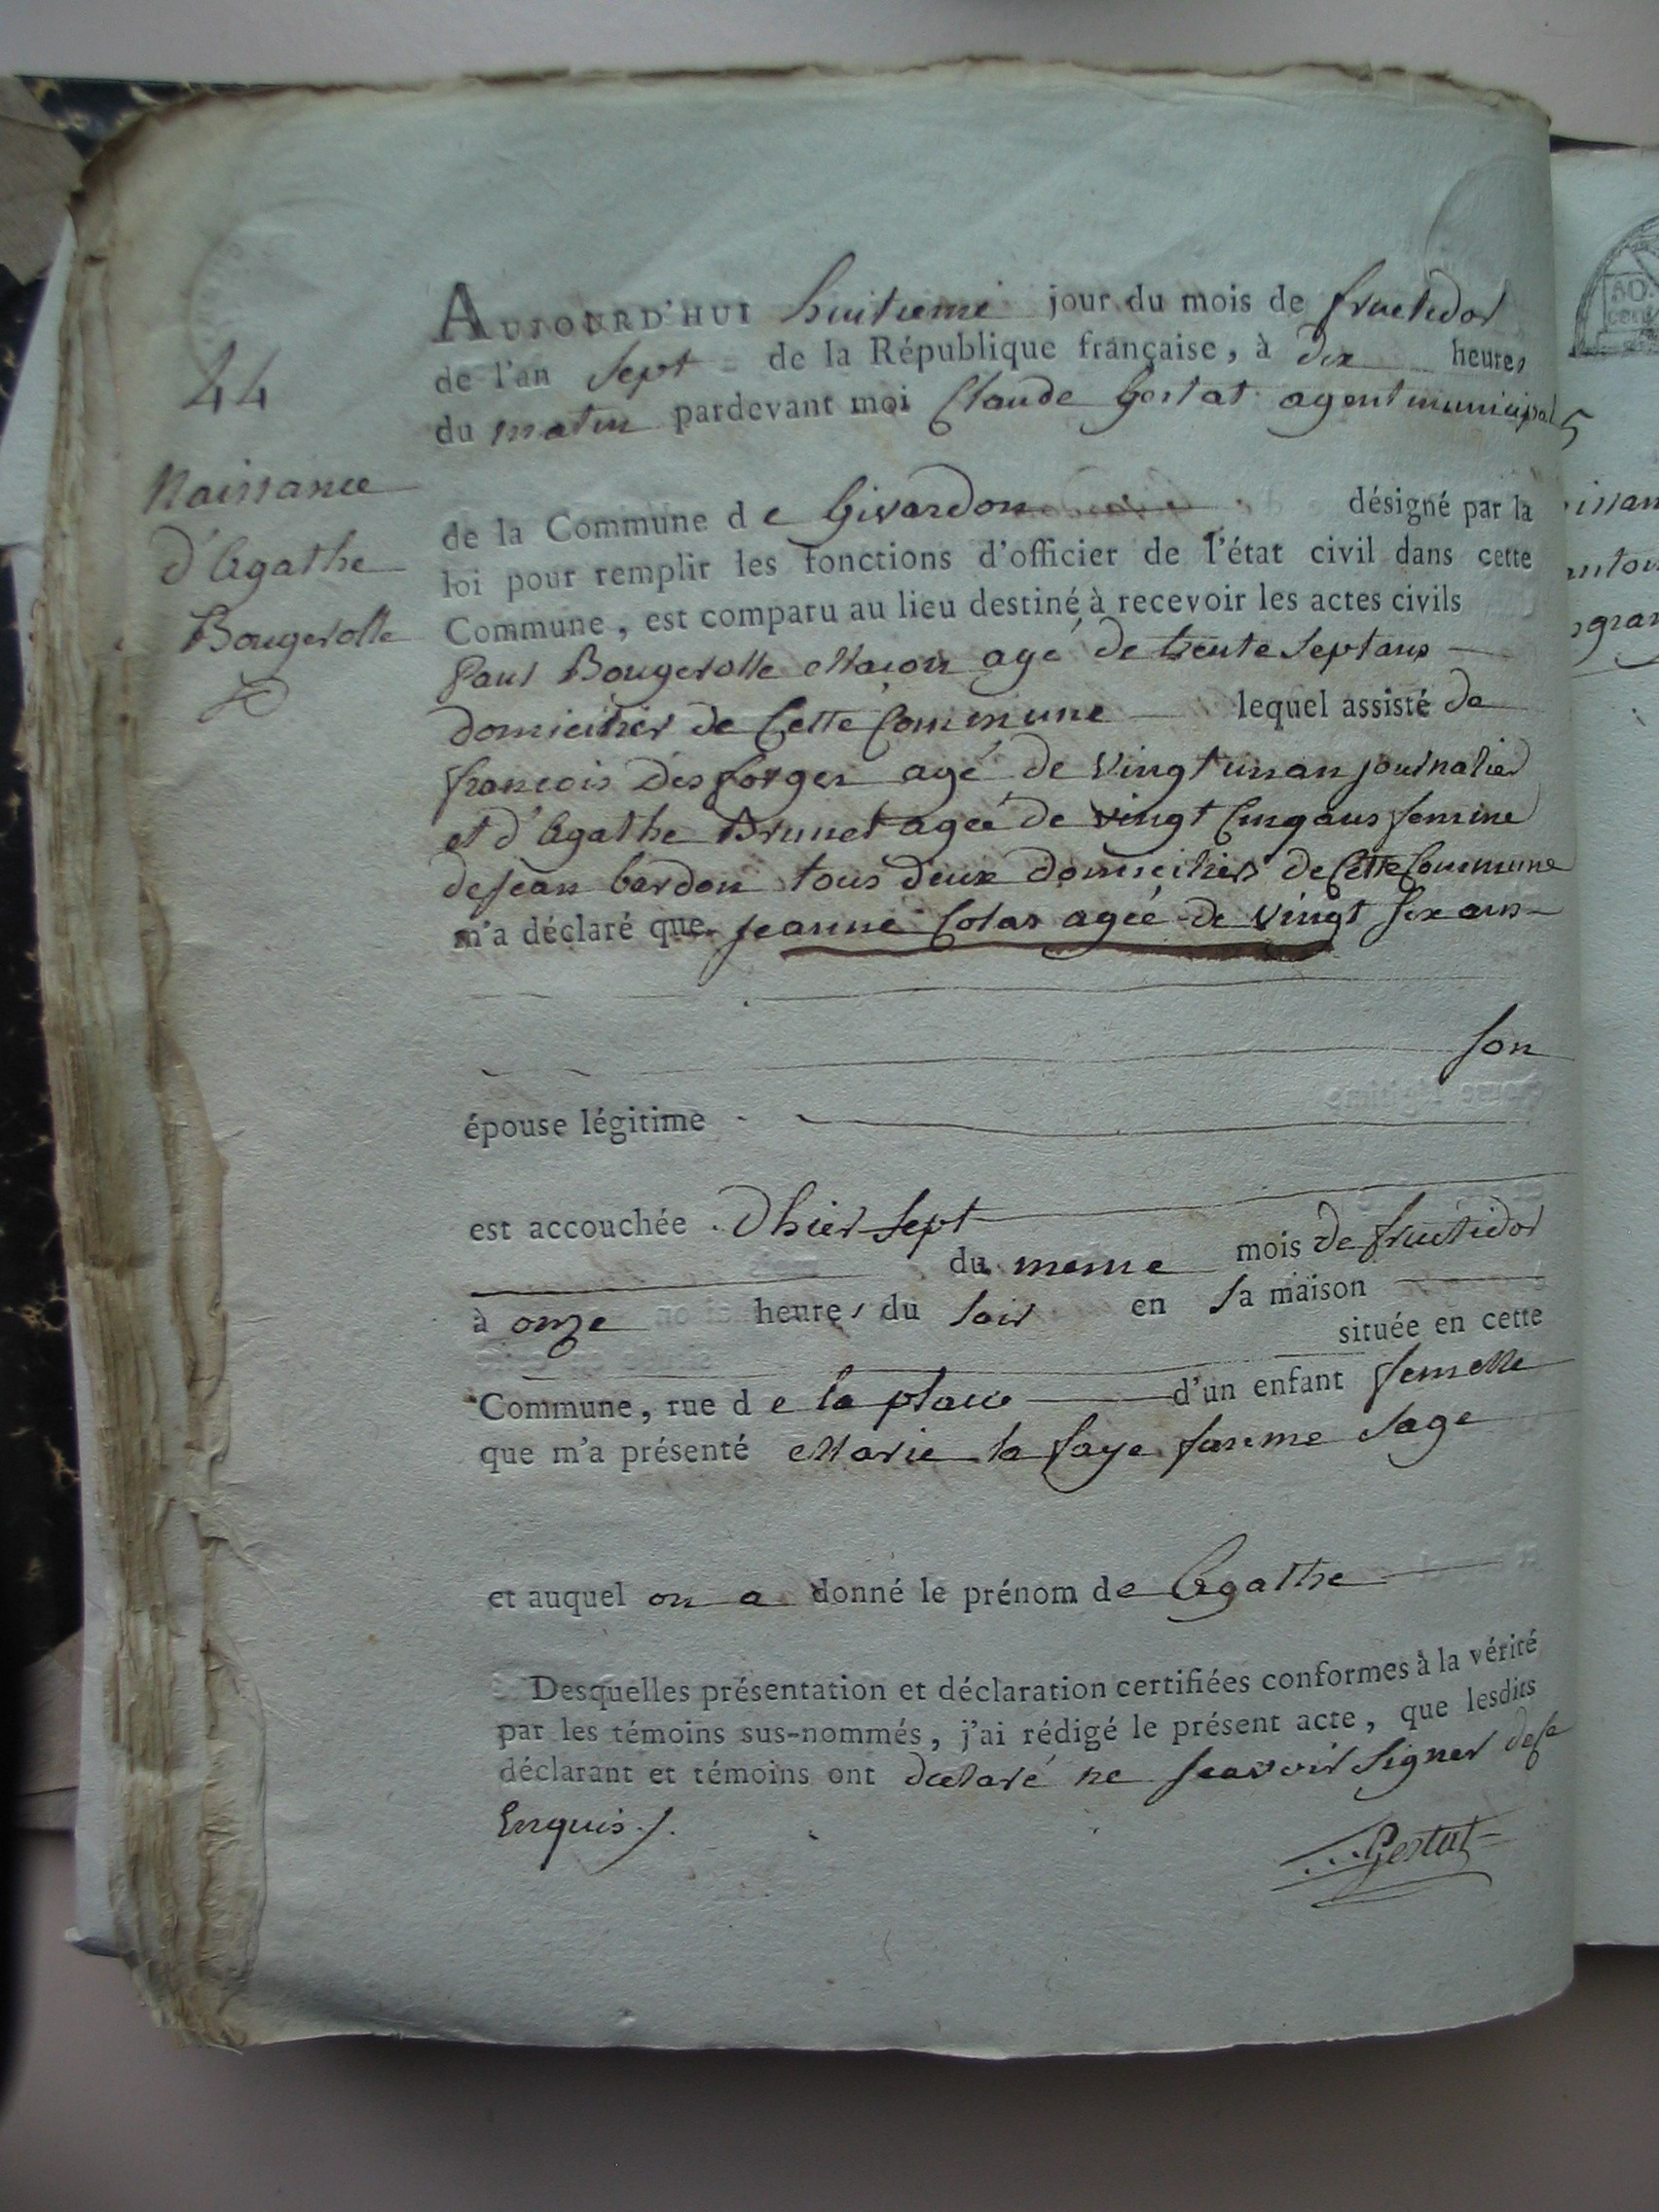 AUJOURD'HUI huitieme jour du mois de fructidor
de l'an sept de la République française, à dix heures
du matin pardevant moi Claude Gestat agent municipal
44
Naissance
d'Agathe
Bougerolle
de la Commune de Givardon désigné par la
loi pour remplir les fonctions d'officier de l'état civil dans cette
Commune, est comparu au lieu destiné à recevoir les actes civils
Paul Bougerolle Maçon agé de trente sept ans
domicilier de Cette Commune lequel assisté de
francois Desforges agé de vingt un an journalier
et d'Agathe Brunet ageé de vingt Cinq ans femme
de jean bardon tous deux domiciliers de Cette Commune
m'a déclaré que jeanne Colas ageé de vingt six ans
son
épouse légitime
est accouchée d'hier sept
du meme mois de fructidor
à onze heures du soir en sa maison
située en cette
Commune, rue de la place d'un enfant femelle
que m'a présenté Marie la faye famme sage
et auquel on a donné le prénom de Agathe
Desquelles présentation et déclaration certifiées conformes à la vérité
par les témoins sus-nommés, j'ai rédigé le présent acte, que lesdits
déclarant et témoins ont declaré ne scavoir signer de ce
Enquis
Gestat
5
50
cent